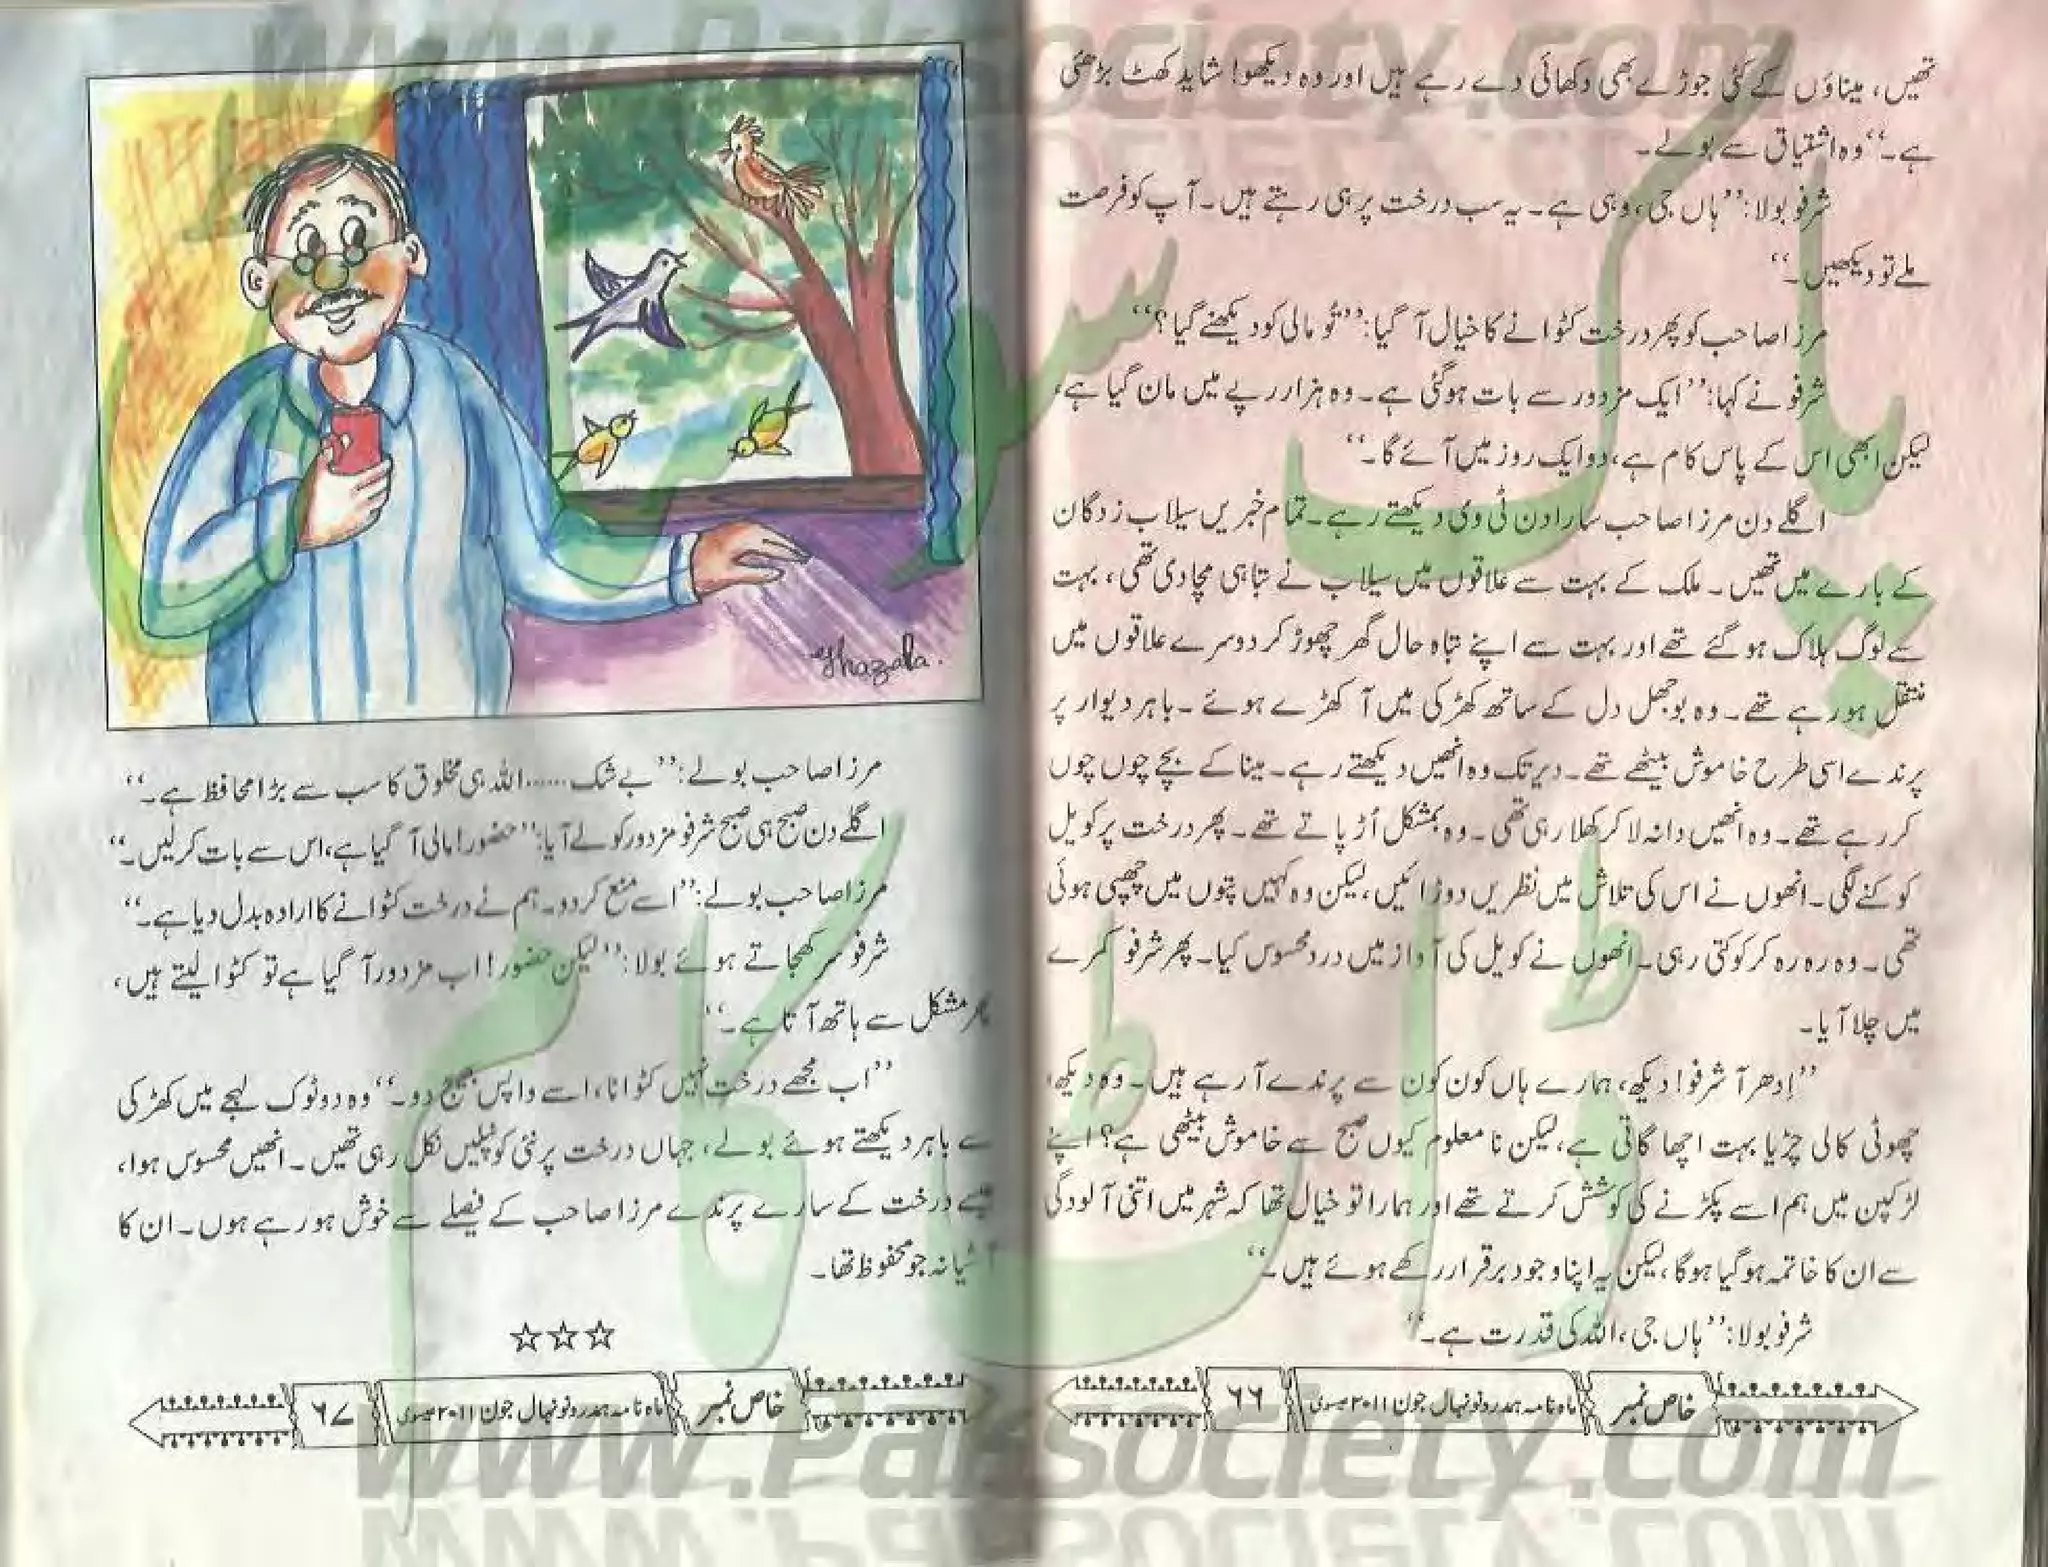 تھیں، میناؤں کے کئی جوڑے بھی دکھائی دے رہے ہیں اور وہ دیکھو! شاید کھٹ بڑھئی
ہے۔‘‘ وہ اشتیاق سے بولے۔
شرفو بولا: ’’ہاں جی، وہی ہے۔ یہ سب درخت پر ہی رہتے ہیں۔ آپ کو فرصت
ملے تو دیکھیں۔‘‘
مرزا صاحب کو پھر درخت کٹوانے کا خیال آ گیا: ’’تُو مالی کو دیکھنے گیا؟‘‘
شرفو نے کہا: ’’ایک مزدور سے بات ہو گئی ہے۔ وہ ہزار رپے میں مان گیا ہے،
لیکن ابھی اس کے پاس کام ہے، دو ایک روز میں آئے گا۔‘‘
اگلے دن مرزا صاحب سارا دن ٹی وی دیکھتے رہے۔ تمام خبریں سیلاب زدگان
کے بارے میں تھیں۔ ملک کے بہت سے علاقوں میں سیلاب نے تباہی مچا دی تھی، بہت
سے لوگ ہلاک ہو گئے تھے اور بہت سے اپنے تباہ حال گھر چھوڑ کر دوسرے علاقوں میں
منتقل ہو رہے تھے۔ وہ بوجھل دل کے ساتھ کھڑکی میں آ کھڑے ہوئے۔ باہر دیوار پر
پرندے اسی طرح خاموش بیٹھے تھے۔ دیر تک وہ انھیں دیکھتے رہے۔ مینا کے بچے چوں چوں
کر رہے تھے۔ وہ انھیں دانہ لا کر کھلا رہی تھی۔ وہ بمشکل اُڑ پاتے تھے۔ پھر درخت پر کویل
کوکنے لگی۔ انھوں نے اس کی تلاش میں نظریں دوڑائیں، لیکن وہ کہیں پتوں میں چھپی ہوئی
تھی۔ وہ رہ رہ کر کوکتی رہی۔ انھوں نے کویل کی آواز میں درد محسوس کیا۔ پھر شرفو کمرے
میں چلا آیا۔
’’اِدھر آ شرفو! دیکھ، ہمارے ہاں کون کون سے پرندے آ رہے ہیں۔ وہ دیکھ،
چھوٹی کالی چڑیا بہت اچھا گاتی ہے، لیکن نا معلوم کیوں صبح سے خاموش بیٹھی ہے؟ اپنے
لڑکپن میں ہم اسے پکڑنے کی کوشش کرتے تھے اور ہمارا تو خیال تھا کہ شہر میں اتنی آلودگی
سے ان کا خاتمہ ہو گیا ہوگا، لیکن یہ اپنا وجود برقرار رکھے ہوئے ہیں۔‘‘
شرفو بولا: ’’ہاں جی، اللہ کی قدرت ہے۔‘‘
خاص نمبر ماہ نامہ ہمدرد نونہال جون ۲۰۱۱ عیسوی ۶۶
Ghazala.
مرزا صاحب بولے: ’’بے شک...... اللہ ہی مخلوق کا سب سے بڑا محافظ ہے۔‘‘
اگلے دن صبح ہی صبح شرفو مزدور کو لے آیا: ’’حضور! مالی آ گیا ہے، اس سے بات کر لیں۔‘‘
مرزا صاحب بولے: ’’اسے منع کر دو۔ ہم نے درخت کٹوانے کا ارادہ بدل دیا ہے۔‘‘
شرفو سر کھجاتے ہوئے بولا: ’’لیکن حضور! اب مزدور آ گیا ہے تو کٹوا لیتے ہیں،
پھر مشکل سے ہاتھ آتا ہے۔‘‘
’’اب مجھے درخت نہیں کٹوانا، اسے واپس بھیج دو۔‘‘ وہ دوٹوک لہجے میں کھڑکی
سے باہر دیکھتے ہوئے بولے، جہاں درخت پر نئی کونپلیں نکل رہی تھیں۔ انھیں محسوس ہوا،
جیسے درخت کے سارے پرندے مرزا صاحب کے فیصلے سے خوش ہو رہے ہوں۔ ان کا
آشیانہ جو محفوظ تھا۔
خاص نمبر ماہ نامہ ہمدرد نونہال جون ۲۰۱۱ عیسوی ۶۷
www.Paksociety.com
پاک سوسائٹی ڈاٹ کام
www.Paksociety.com